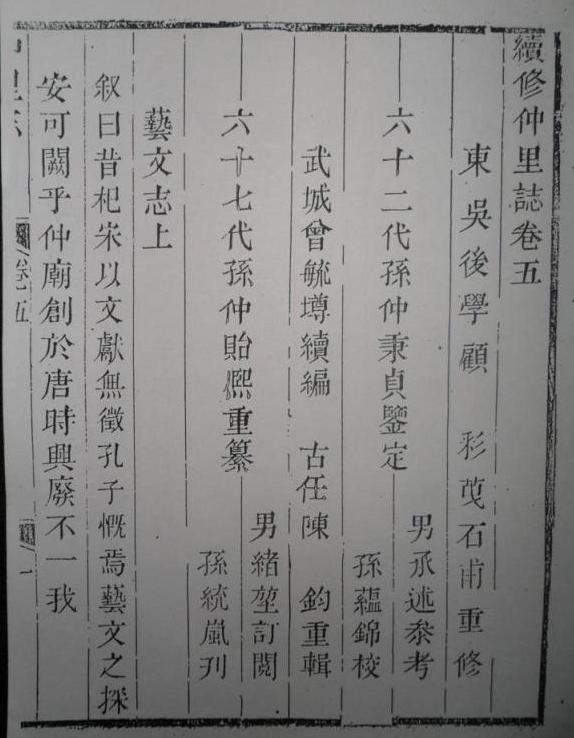 續修仲里誌卷五
東吳後學顧 彩茂石甫重修
六十二代孫仲秉貞鑒定
男承述叅考
孫蘊錦校
武城曾毓墫續編
古任陳 鈞重輯
六十七代孫仲貽熙重纂
男緒堃訂閱
孫統嵐刋
藝文志上
叙曰昔杞宋以文獻無徵孔子慨焉藝文之採
安可闕乎仲廟創於唐時興廢不一我
卷五
一